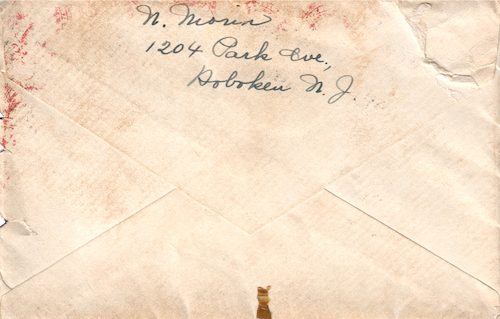 N. Moren
1204 Park Ave.,
Hoboken N. J.